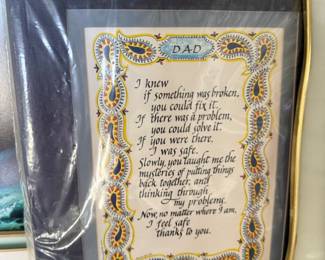 DAD
I knew
if something was broken,
you could fix it.
If there was a problem,
you could solve it.
If you were there,
I was safe.
Slowly, you taught me the
mysteries of putting things
back together, and
thinking through
my problems.
Now, no matter where I am,
I feel safe
thanks to you.